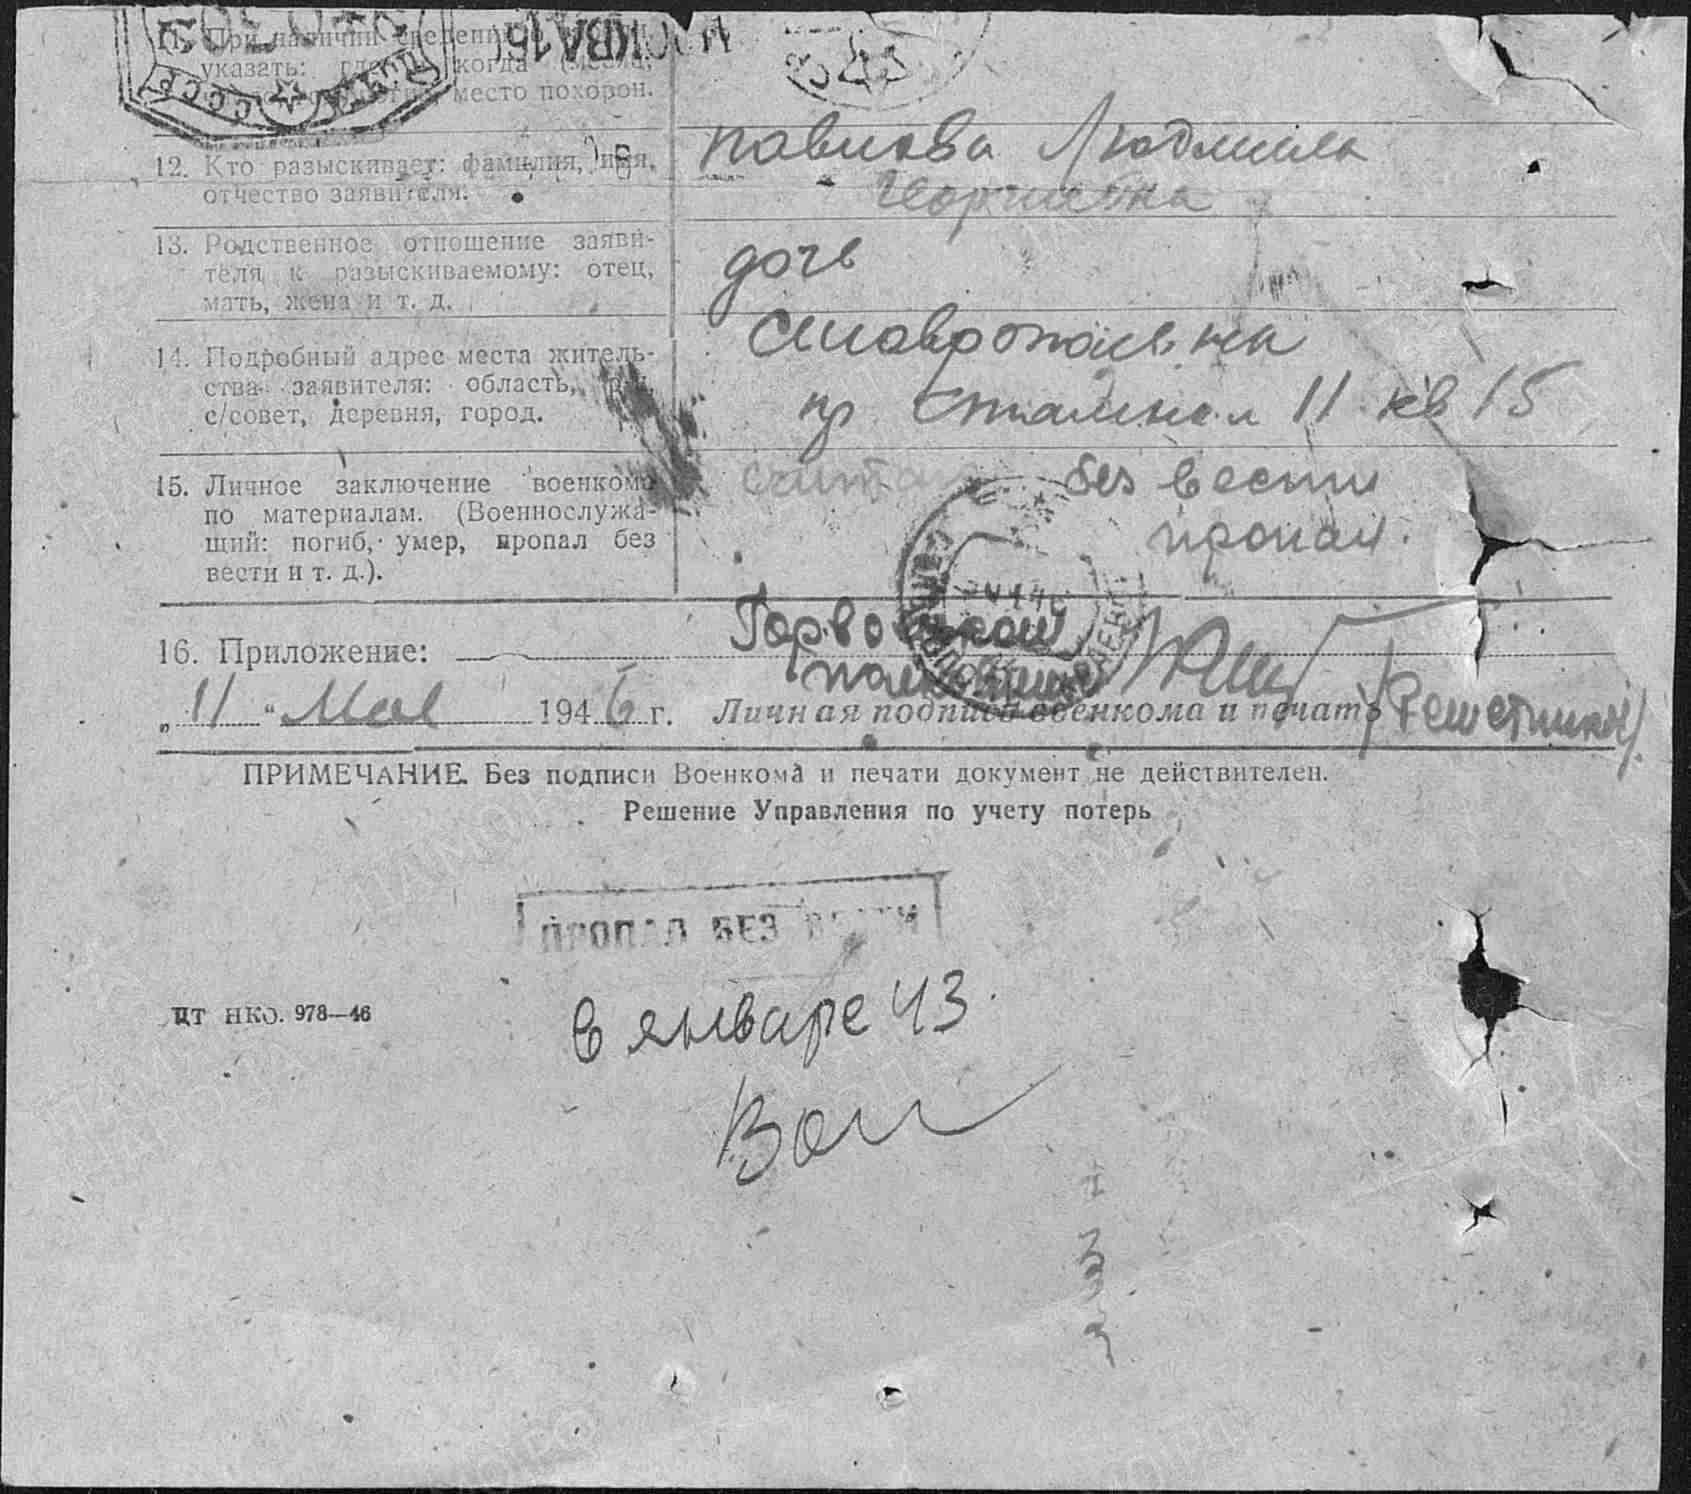 11. При наличии
указать: когда
место похорон.
12. Кто разыскивает: фамилия, имя,
отчество заявителя.
Павлова Людмила
Георгиевна
13. Родственное отношение заяви-
теля к разыскиваемому: отец,
мать, жена и т. д.
дочь
14. Подробный адрес места житель-
ства заявителя:  область,
с/совет, деревня, город.
Ставрополь
пр Сталина 11 кв 15
15. Личное заключение военкома
по материалам. (Военнослужа-
щий: погиб, умер, пропал без
вести и т. д.).
считать без вести
пропал.
16. Приложение:
Горвоенком
„ 11 “ Мая 1946 г. Личная подпись военкома и печать
ПРИМЕЧАНИЕ. Без подписи Военкома и печати документ не действителен.
Решение Управления по учету потерь
ПРОПАЛ БЕЗ ВЕСТИ
в январе 43.
ЦТ НКО. 978—46